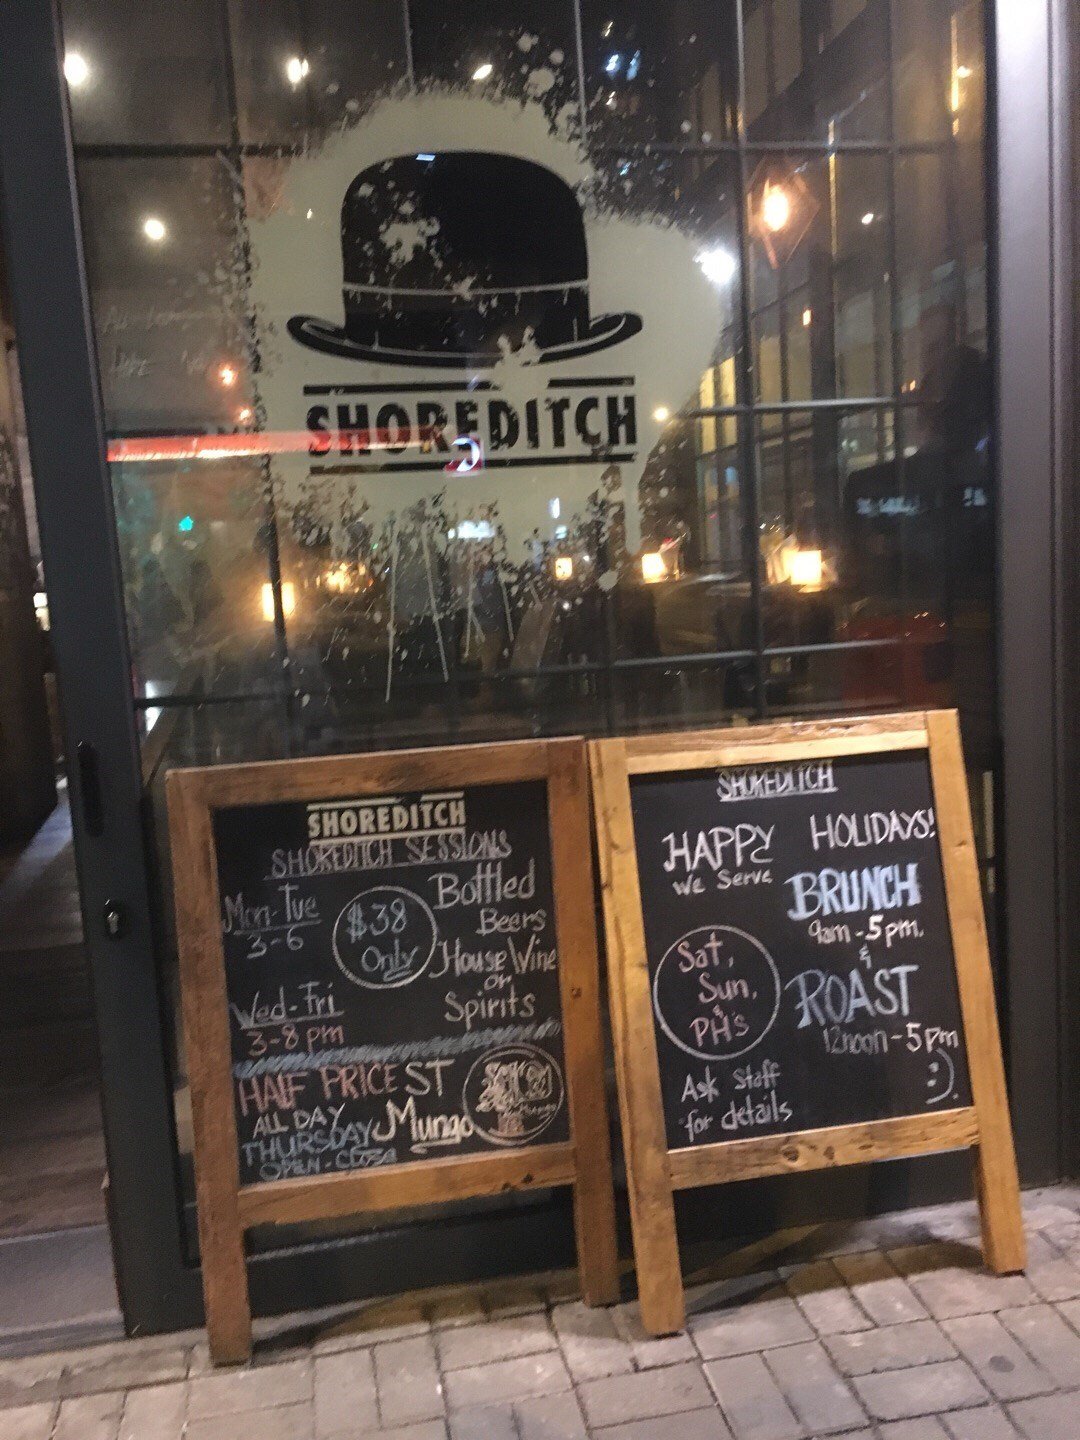 SHOREDITCH
SHOREDITCH
SHOREDITCH SESSIONS
Mon-Tue
3-6
$38
Only
Bottled
Beers
House Wine
or
Spirits
Wed-Fri
3-8pm
HALF PRICE ST
ALL DAY Mungo
THURSDAY
OPEN-CLOSE
SHOREDITCH
HAPPY HOLIDAYS!
We Serve BRUNCH
9am-5pm.
&
ROAST
12noon-5pm
Sat,
Sun,
&
PH's
Ask Staff
for details
:)